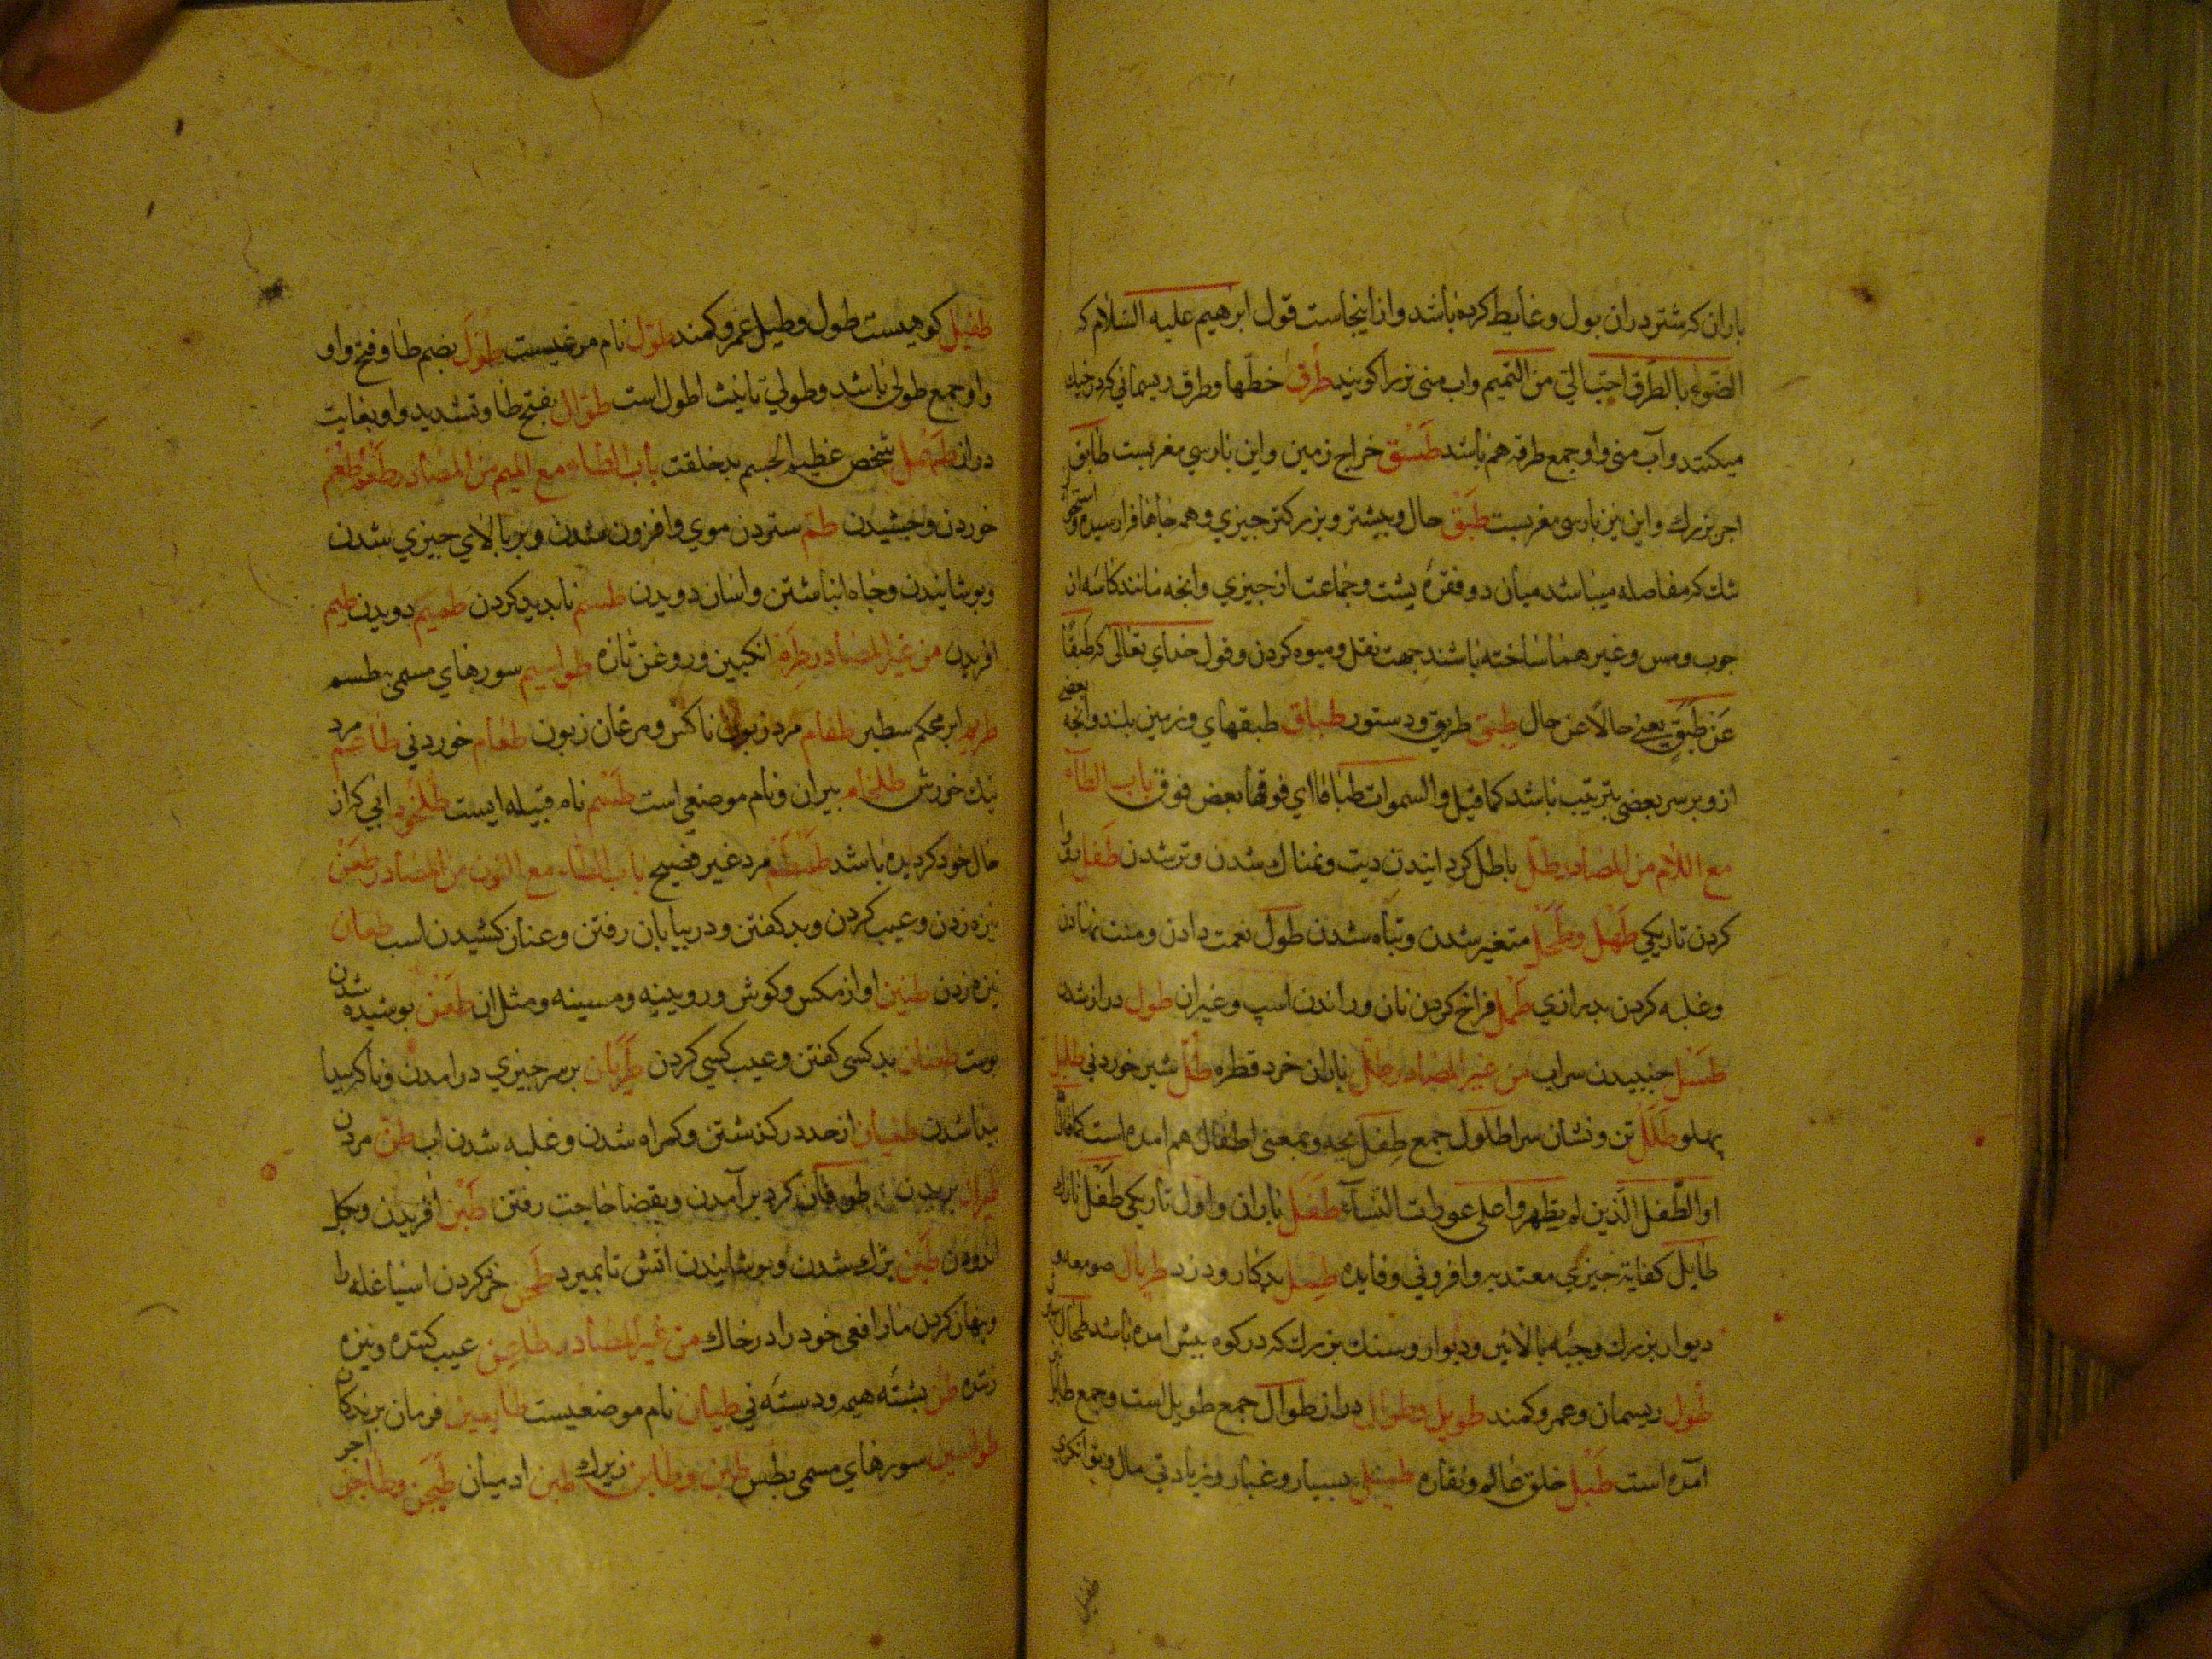 باران که شتر دران بول و غایط کرده باشد و از اینجاست قول ابرهیم علیه السلام که
الضوء بالطرق احب الی من التمیم و اب منی نر را کویند طرق خطها و طرق ریسمانی که در خیک
میکنند و آب منی و او جمع طرقه هم باشد طسق خراج زمین و این بارسی معربست طابق
اجر بزرك و این نیز بارسی معربست طبق حال و بیشتر و بزرکتر جیزی و همه جاها فرا رسیده و استخوان
تنك که مفاصله میباشد میان دو فقره پشت و جماعت از جیزی و انجه مانند کاسه از
جوب و مس و غیر هما ساخته باشند جهت نقل و میوه کردن و قول خدای تعالی که طبقا
عن طبق یعنی حالا عن حال طبق طریق و دستور طباق طبقهای و زمین بلند و انجه بعضی
ازو بر سر بعضی بترتیب باشد کما قیل و السموات طباقا ای فوقها بعض فوق باب الطاء
مع اللام من المصادر طل باطل کردانیدن دیت و نمناك شدن و تر شدن طفل
کردن تاریکی طهل و طحل متغیر شدن و تباه شدن طول نعمت دادن و منت نهادن
و غلبه کردن بدرازی طمل فراخ کردن نان و راندن اسپ و غیران طول دراز شدن
طسل جنبیدن سراب من غیر المصادر طل باران خرد قطره طل شیر خوردنی
پهلو طلل تن و نشان سرا طلول جمع طفل بجه و بمعنی اطفال هم امده است کما قال
او الطفل الذین لم یظهروا علی عورات النساء طفل باران و اول تاریکی طفل نازك
طایل کفایة جیزی معتد به و افزونی و فایده طمل بدکار و دزد طربال صومعه و
دیوار بزرك و جبه بالائین و دیوار و سنك بزرك که در کوه بیش امده باشد طحال
طول ریسمان و عمر و کمند طویل و طوال دراز طوال جمع طویل است و جمع
آمده است طبل خلق عالم و نقاره طیسل بسیار و غبار و زیادتی مال و توانکری
طفیل
طفیل کوهیست طول و طیل عمر و کمند طول نام مرغیست طول بضم طا و فتح واو
واو جمع طولی باشد و طولی تانیث اطول است طوال بفتح طا و تشدید واو بغایت
دراز طهمل شخص عظیم الجسم بد خلقت باب الطاء مع المیم من المصادر طعم و طعم
خوردن و جشیدن طم ستردن موی و افزون شدن و بر بالای جیزی شدن
و بوشانیدن و جاه انباشتن و اسان دویدن طسم نابدید کردن طمیم دویدن طیم
افریدن من غیر المصادر طرم انکبین و روغن تازه طواسیم سورهای مسمی بطسم
طریم ابر محکم سطبر طغام مرد زبون ناکس و مرغان زبون طعام خوردنی طاعم مرد
نیك خورش طلخام بیران و نام موضعی است طسم نام قبیله ایست طلخوم ابی کزان
حال خود کردیده باشد طمطم مرد غیر فصیح باب الطاء مع النون من المصادر طعن
نیزه زدن و عیب کردن و بد کفتن و در بیابان رفتن و عنان کشیدن اسب طعان
نیزه زدن طنین اواز مکس و کوش و رویینه و مسینه و مثل ان بوشیده شدن
بوست طعنان بد کسی کفتن و عیب کسی کردن طریان بر سر جیزی در امدن و ناکه بیدا
بیدا شدن طغیان از حد در کذشتن و کمراه شدن و غلبه شدن اب طن مردن
طیران بریدن طوفان کرد برآمدن و بقضا حاجت رفتن طین افریدن و بکل
اندودن طبن زیرك شدن و بوشانیدن اتش تا نمیرد طحن خرد کردن اسیا غله را
و پنهان کردن مار افعی خود را در خاك من غیر المصادر طاعن عیب کننده و نیزه
زننده طن بشته هیمه و دسته نی طیان نام موضعیست طایعین فرمان برندکان
طواسین سورهای مسمی بطس طبن و طابن زیرك طبن ادمیان طیجن و طاجن اجر